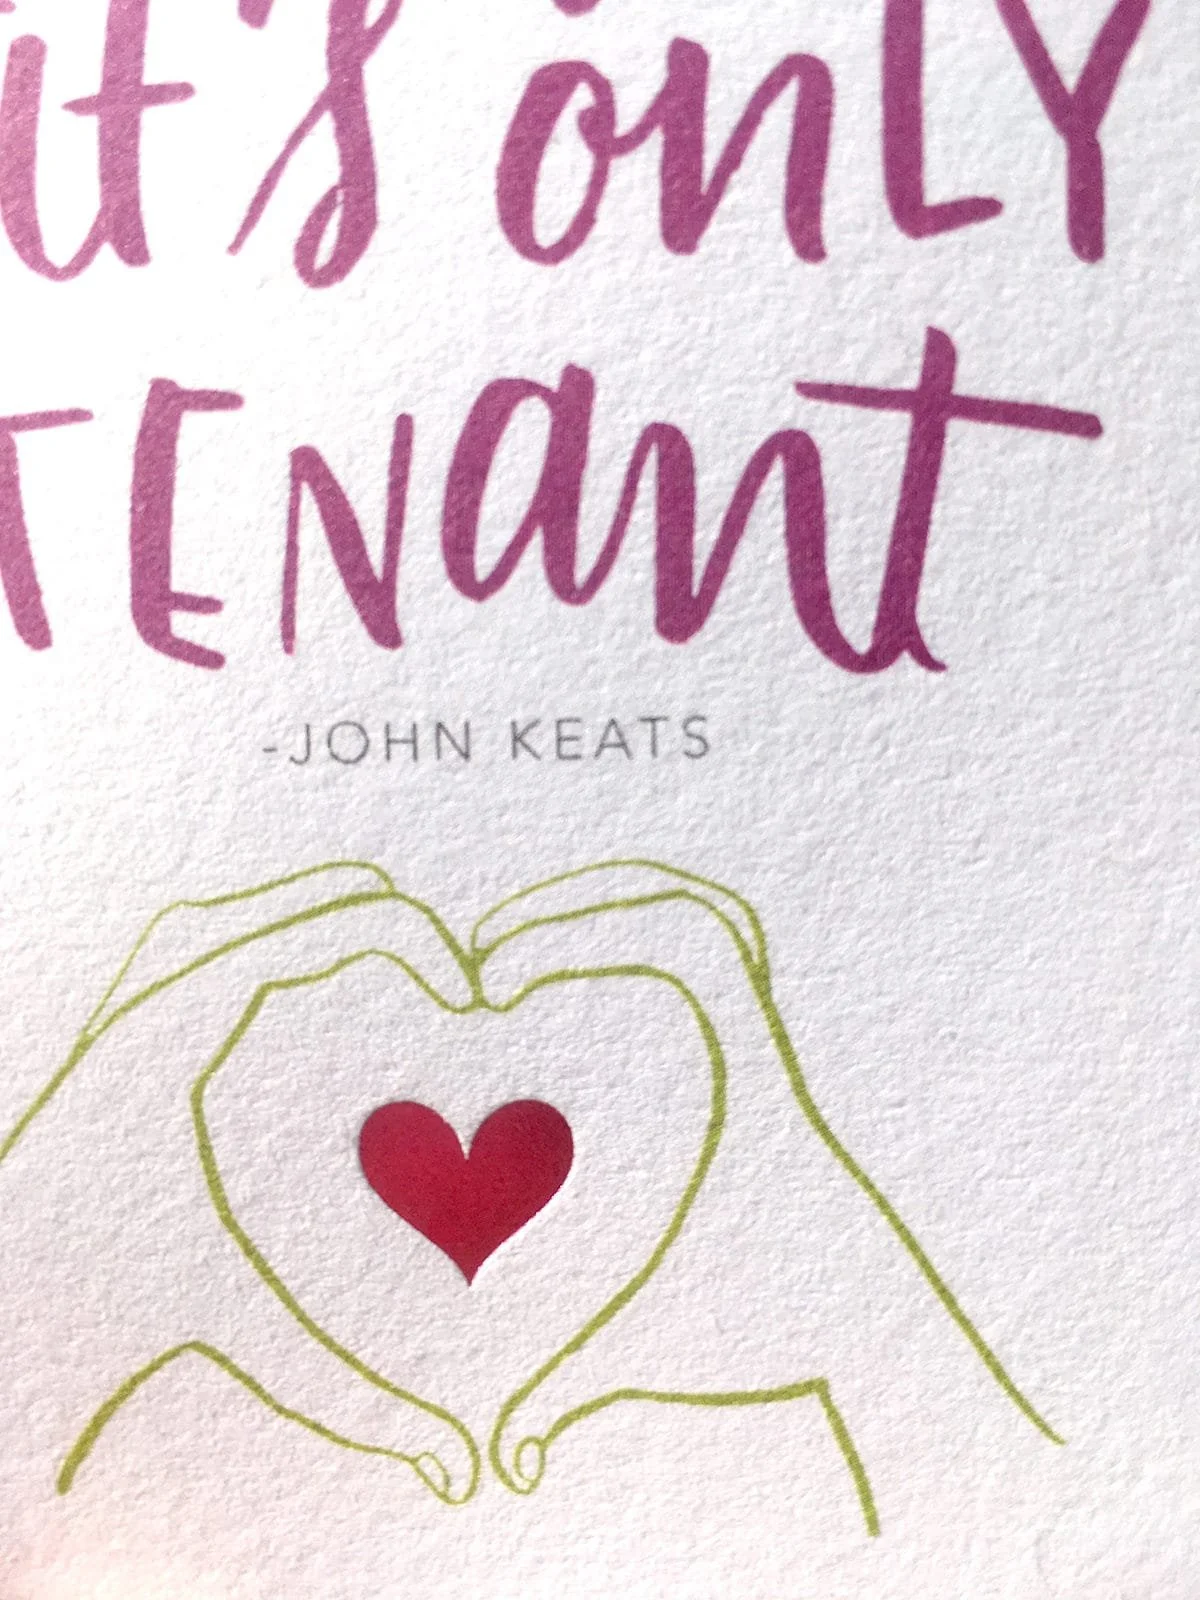 it's only
TENant
-JOHN KEATS